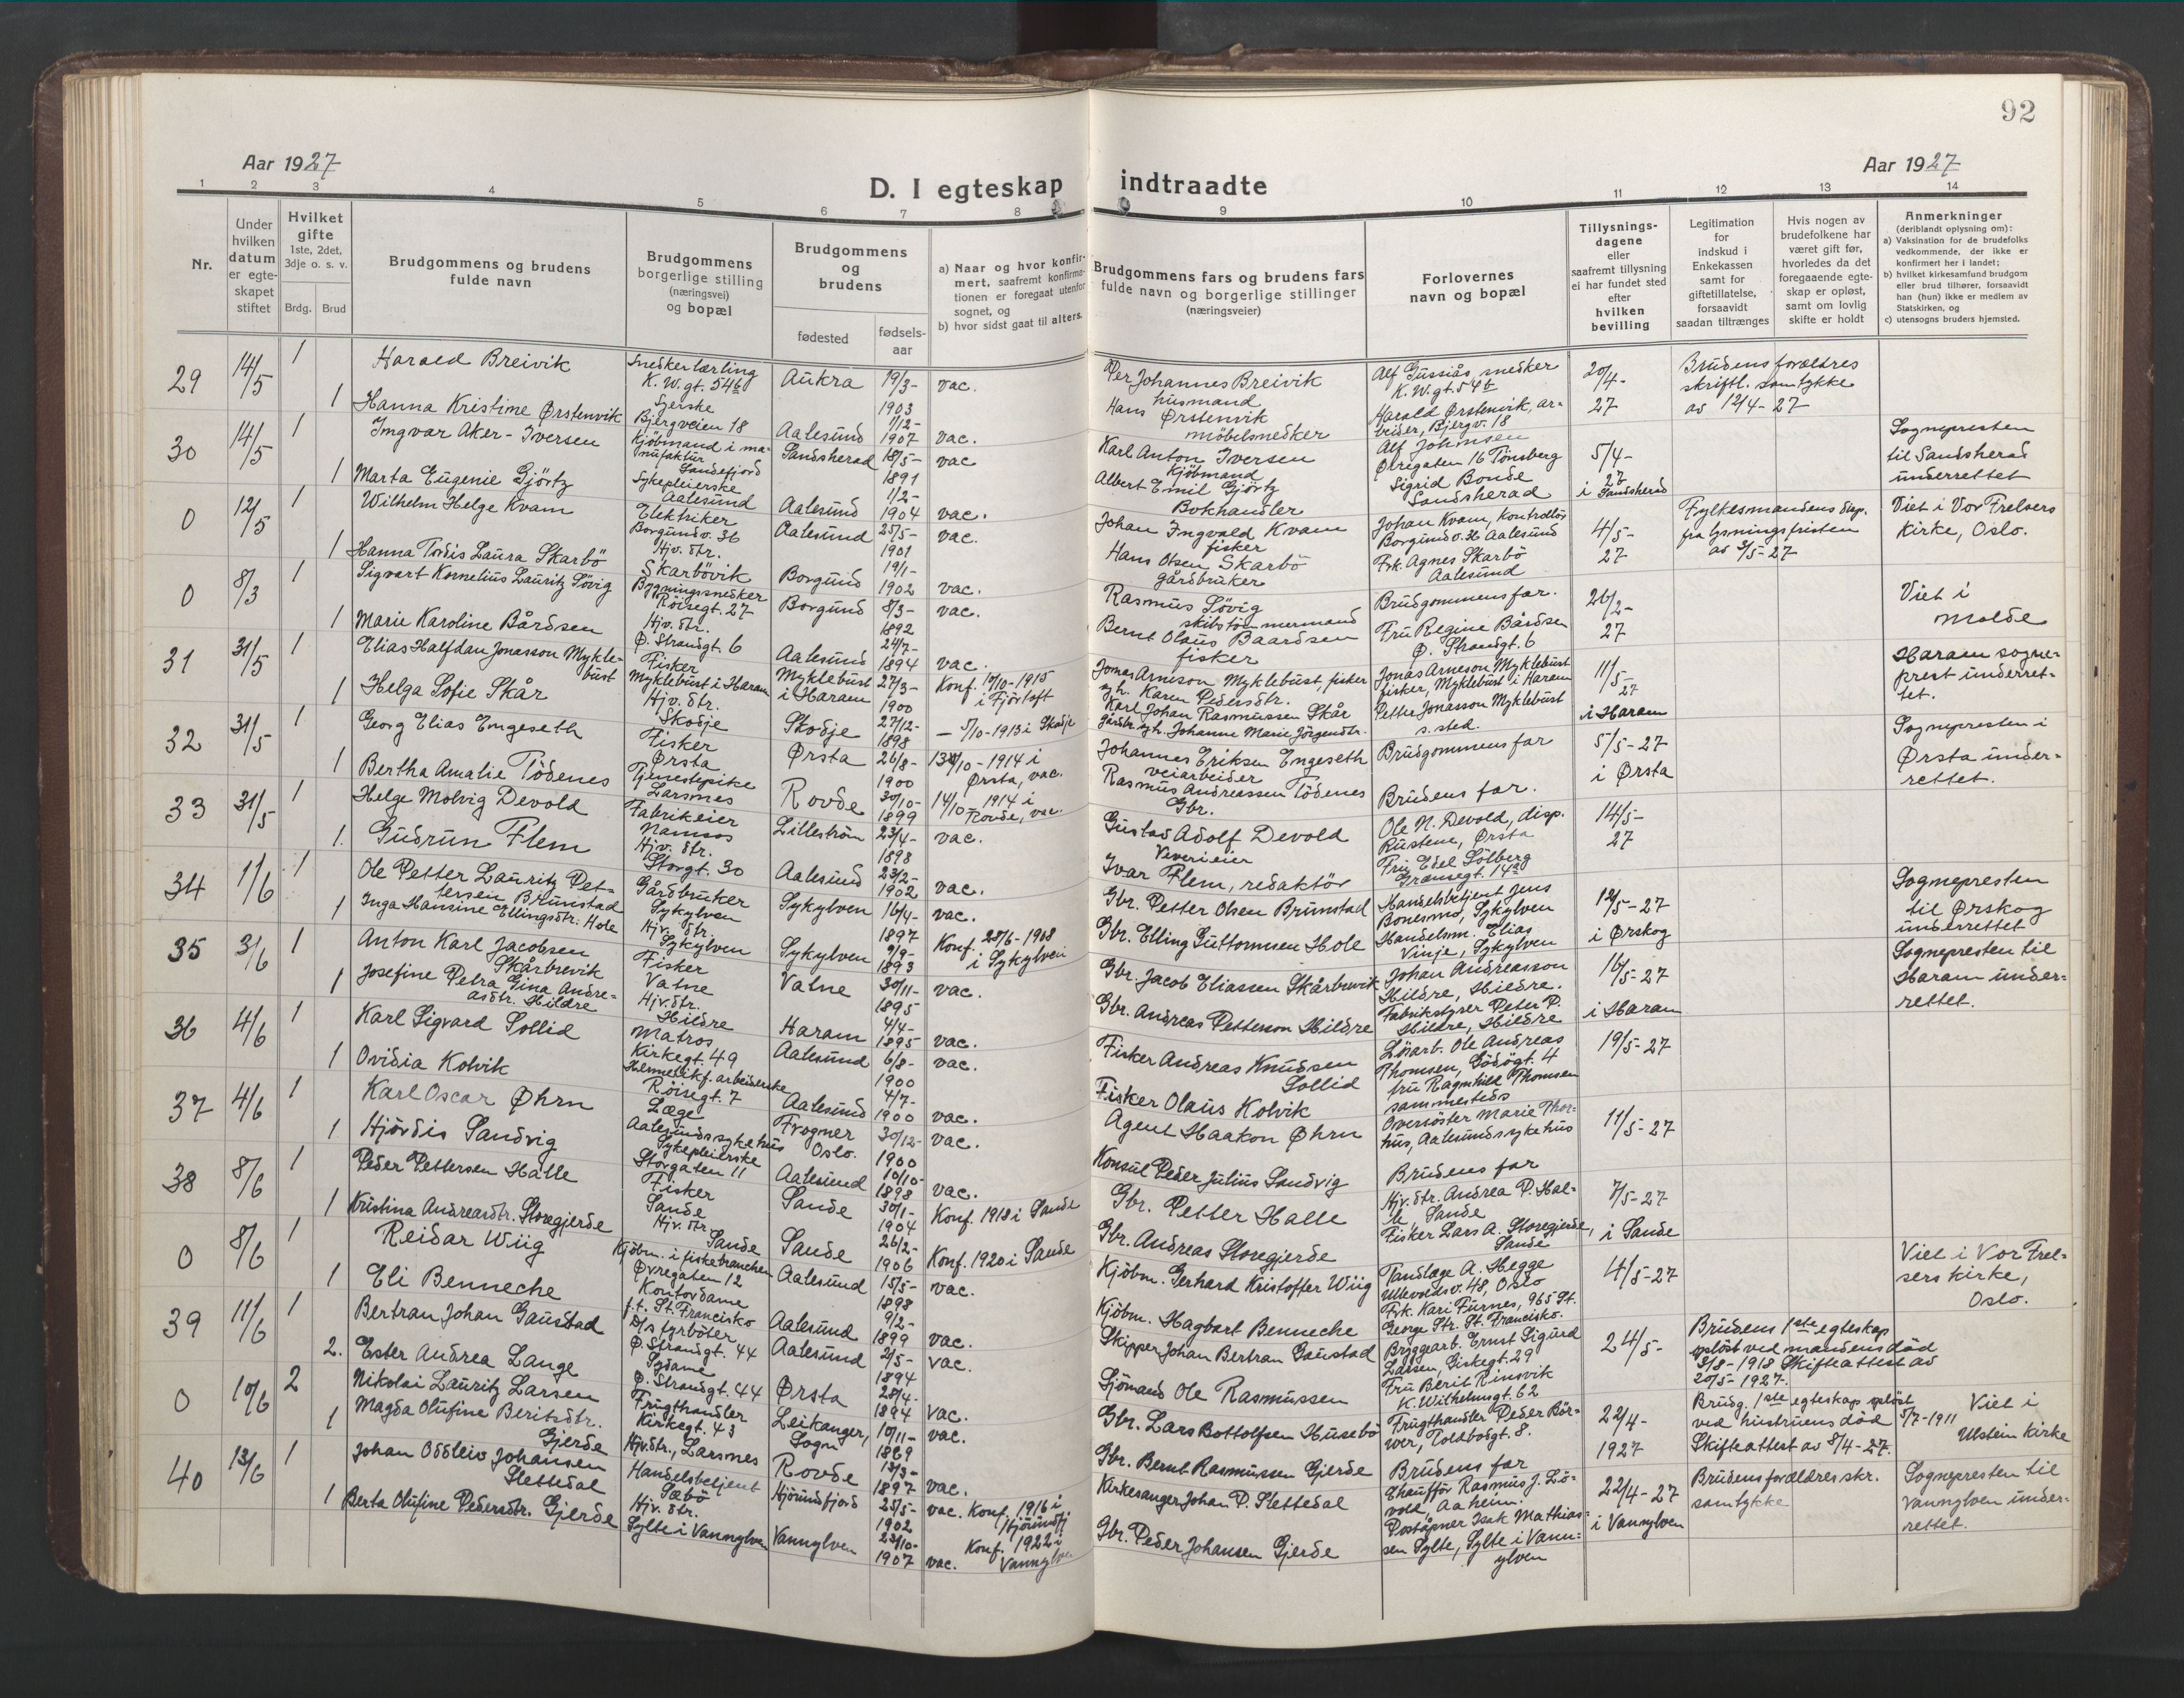 92
Aar 1927
Aar 1927
D. I egteskap indtraadte
1 2 3 4 5 6 7 8 9 10 11 12 13 14
Nr.
Under hvilken datum er egteskapet stiftet
Hvilket gifte 1ste, 2det, 3dje o. s. v.
Brdg.
Brud
Brudgommens og brudens fulde navn
Brudgommens borgerlige stilling (næringsvei) og bopæl
Brudgommens og brudens
fødested
fødselsaar
a) Naar og hvor konfirmert, saafremt konfirmationen er foregaat utenfor sognet, og
b) hvor sidst gaat til alters.
Brudgommens fars og brudens fars fulde navn og borgerlige stillinger (næringsveier)
Forlovernes navn og bopæl
Tillysningsdagene eller saafremt tillysning ei har fundet sted efter hvilken bevilling
Legitimation for indskud i Enkekassen samt for giftetillatelse, forsaavidt saadan tiltrænges
Hvis nogen av brudefolkene har været gift før, hvorledes da det foregaaende egteskap er opløst, samt om lovlig skifte er holdt
Anmerkninger (deriblandt oplysning om):
a) Vaksination for de brudefolks vedkommende, der ikke er konfirmert her i landet;
b) hvilket kirkesamfund brudgom eller brud tilhører, forsaavidt han (hun) ikke er medlem av Statskirken, og
c) utensogns bruders hjemsted.
29 14/5 1 Harald Breivik Snedkerlærling K. W. gt. 54b Aukra 19/3-1903 vac. Per Johannes Breivik husmand Alf Gussiås, snedker K. W. gt. 54b 20/4-27 Brudens forældres skriftl. samtykke av 12/4-27
1 Hanna Kristine Ørstenvik Syerske Bjergveien 18 Aalesund 1/12-1907 vac. Hans Ørstenvik møbelsnedker Harald Ørstenvik, arbeider, Bjergv. 18
30 14/5 1 Ingvar Aker-Iversen Kjøbmand i manufaktur Sandefjord Sandsherad 18/5-1891 vac Karl Anton Iversen Kjøbmand Alf Johnsen Øvregaten 16 Tönsberg 5/4-27 i Sandsherad Sognepresten til Sandsherad underrettet
1 Marta Eugenie Gjörtz Sykepleierske Aalesund Aalesund 1/2-1904 vac. Albert Emil Gjörtz Bokhandler Sigrid Bonde Sandsherad
0 12/5 1 Wilhelm Helge Kvam Elektriker Borgundv. 36 Aalesund 25/5-1901 vac. Johan Ingvald Kvam fisker Johan Kvam, kontrollör Borgundv. 36 Aalesund 4/5-27 Fylkesmandens disp. fra lysningsfristen av 3/5-27 Viet i Vor Frelsers Kirke, Oslo.
1 Hanna Tordis Laura Skarbö Hjv. dtr. Skarbövik Borgund 19/1-1902 vac. Hans Olsen Skarbö gårdbruker Frk. Agnes Skarbö Aalesund
0 8/3 1 Sigvart Kornelius Lauritz Sövig Bygningssnedker Röisegt. 27 Borgund 8/3-1892 vac. Rasmus Sövig skibstömmermand Brudgommens far. 26/2-27 Viet i Molde
1 Marie Karoline Bårdsen Hjv. dtr. Ø. Strandgt. 6 Aalesund 24/7-1894 vac. Bernt Olaus Baardsen fisker Fru Regine Bårdsen Ø. Strandgt. 6
31 31/5 1 Elias Halfdan Jonasson Myklebust Fisker Myklebust i Haram Myklebust i Haram 27/3-1900 Konf. 10/10-1915 i Fjörtoft Jonas Arneson Myklebust, fisker og h. Karen Pedersdtr. Jonas Arneson Myklebust fisker, Myklebust i Haram 11/5-27 i Haram Haram sogneprest underrettet.
1 Helga Sofie Skår Hjv. dtr. Skodje Skodje 27/12-1898 - 5/10-1913 i Skodje Karl Johan Rasmussen Skår gårdbr. og h. Johanne Marie Jörgendtr. Petter Jonasson Myklebust s. sted.
32 31/5 1 Georg Elias Engeseth Fisker Ørsta Ørsta 26/8-1900 /10-1914 i Ørsta, vac. Johannes Eriksen Engeseth veiarbeider Brudgommens far 5/5-27 i Ørsta Sognepresten i Ørsta underrettet.
1 Bertha Amalie Tödenes Tjenestepike Larsnes Rovde 30/10-1899 14/10-1914 i Rovde, vac. Rasmus Andreassen Tödenes Gbr. Brudens far.
33 31/5 1 Helge Molvig Devold Fabrikeier Namsos Lilleström 23/4-1898 vac. Gustav Adolf Devold Veverieier Ole N. Devold, disp. Rustene, Ørsta 14/5-27
1. Gudrun Flem Hjv. dtr. Storgt. 30 Aalesund 23/2-1902 vac. Ivar Flem, redaktör Fru Edel Sölberg Grensegt. 14a
34 1/6 1 Ole Petter Lauritz Pettersen Brunstad Gårdbruker Sykylven Sykylven 16/4-1897 vac. Gbr. Petter Olsen Brunstad Handelsbetjent Jens Bonesmo, Sykylven 12/5-27 i Ørskog Sognepresten til Ørskog underrettet
1 Inga Hansine Ellingsdtr. Hole Hjv. dtr. Sykylven Sykylven 9/9-1893 Konf. 28/6-1908 i Sykylven Gbr. Elling Guttormsen Hole Handelsm. Elias Vinje, Sykylven
35 3/6 1 Anton Karl Jacobsen Skårbrevik Fisker Vatne Vatne 30/11-1895 vac. Gbr. Jacob Eliassen Skårbrevik Johan Andreasson Hildre, Hildre. 16/5-27 i Haram Sognepresten til Haram underrettet.
1 Josefine Petra Gina Andreasdtr. Hildre Hjv. dtr. Hildre Haram 4/4-1895 vac. Gbr. Andreas Petterson Hildre Fabrikstyrer Peter P. Hildre, Hildre
36 4/6 1 Karl Sigvard Sollid Matros Kirkegt. 49 Aalesund 6/8-1900 vac. Fisker Andreas Knudsen Sollid Lösarb. Ole Andreas Thomsen, Gödögt. 4 19/5-27
1 Ovidia Kolvik Hermetikf. arbeiderske Röisegt. 7 Aalesund 4/7-1900 vac. Fisker Olaus Kolvik fru Ragnhild Thomsen sammesteds
37 4/6 1 Karl Oscar Øhrn Læge Aalesunds sykehus Frogner Oslo. 30/12-1900 vac. Agent Haakon Øhrn Oversöster Marie Thorhus, Aalesunds sykehus 11/5-27
1 Hjördis Sandvig Sykepleierske Storgaten 11 Aalesund 10/10-1898 vac. Konsul Peder Julius Sandvig Brudens far
38 8/6 1 Peder Pettersen Halle Fisker Sande Sande 30/1-1904 Konf. 1918 i Sande Gbr. Petter Halle Hjv. dtr. Andrea P. Halle, Sande 7/5-27 i Sande
1 Kristina Andreasdtr. Storegjerde Hjv. dtr. Sande Sande 26/2-1906 Konf. 1920 i Sande Gbr. Andreas Storegjerde Fisker Lars A. Storegjerde, Sande
0 8/6 1 Reidar Wiig Kjöbm. i fiskebranchen Øvregaten 12 Aalesund 15/5-1898 vac. Kjöbm. Gerhard Kristoffer Wiig Tandlæge A. Hegge Ullevoldsv. 48, Oslo 4/5-27 Viet i Vor Frelsers kirke, Oslo.
1 Eli Benneche Kontordame f.t. St. Francisko Aalesund 9/2-1899 vac. Kjöbm. Hagbart Benneche Frk. Kari Furnes, 965 St. George Str. St. Francisko.
39 11/6 1 Bertran Johan Gaustad D/s fyrböter Ø. Strandgt. 44 Aalesund 2/5-1894 vac. Skipper Johan Bertran Gaustad Bryggearb. Ernst Sigurd Larsen, Giskegt. 29 24/5- Brudens 1ste egteskap oplöst ved mandens död 3/8-1918 Skifteattest av 20/5-1927.
2. Ester Andrea Lange Sydame Ø. Strandgt. 44 Ørsta 28/4-1894 vac. Sjömand Ole Rasmussen Fru Berit Rinsvik K. Wilhelmsgt. 62
0 10/6 2 Nikolai Lauritz Larsen Frugthandler Kirkegt. 43 Leikanger, Sogn 10/11-1869 vac. Gbr. Lars Bottolfsen Husebö Frugthandler Peder Börver, Toldbodgt. 8. 22/4-1927 Brudg. 1ste egteskap oplöst ved hustruens död 5/7-1911 Skifteattest av 8/4-27. Viet i Ulstein kirke
1 Magda Olufine Beritsdtr. Gjerde Hjv. dtr., Larsnes Rovde 13/3-1897 vac. Gbr. Bernt Rasmussen Gjerde Brudens far
40 13/6 1 Johan Oddleiv Johansen Slettedal Handelsbetjent Sæbö Hjörundfjord 25/5-1902 vac. Konf. 1916 i Hjörundfj Kirkesanger Johan P. Slettedal Chaufför Rasmus J. Lövold, Aaheim. 22/4-27 i Vannylven Brudens forældres skr. samtykke Sognepresten til Vannylven underrettet.
1 Berta Olufine Pedersdtr. Gjerde Hjv. dtr. Sylte i Vannylven Vannylven 23/10-1907 vac. Konf. 1922 i Vannylven Gbr. Peder Johansen Gjerde Poståpner Isak Mathiassen Sylte, Sylte i Vannylven